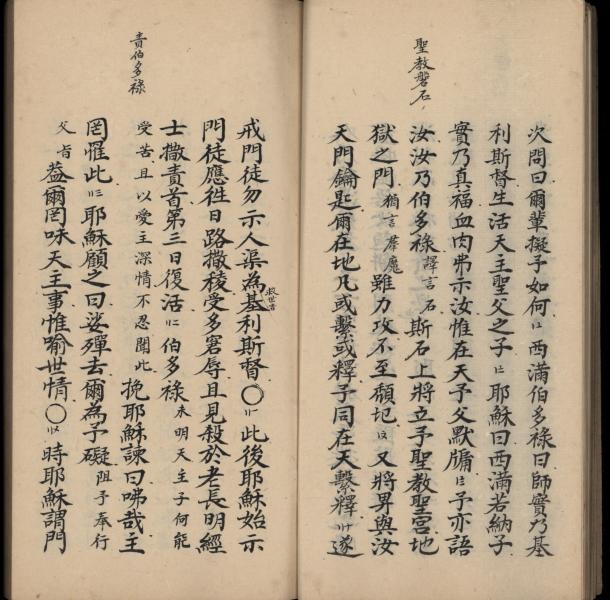 聖教磐石
次問曰爾輩擬予如何西滿伯多祿曰師實乃基
利斯督生活天主聖父之子耶穌曰西滿若納子
實乃真福血肉弗示汝惟在天予父默牖予亦語
汝汝乃伯多祿譯言石斯石上將立予聖教聖宮地
獄之門猶言羣魔雖力攻不至頹圮又將畀與汝
天門鑰匙爾在地凡或繫或釋予同在天繫釋遂
責伯多祿
戒門徒勿示人渠為基利斯督救世者〇此後耶穌始示
門徒應徃日路撒稜受多窘辱且見殺於老長明經
士撒責首第三日復活伯多祿未明天主子何能
受苦且以愛主深情不忍聞此挽耶穌諫曰咈哉主
罔罹此耶穌顧之曰娑殫去爾為予礙阻予奉行
父旨葢爾罔味天主事惟喻世情〇時耶穌謂門